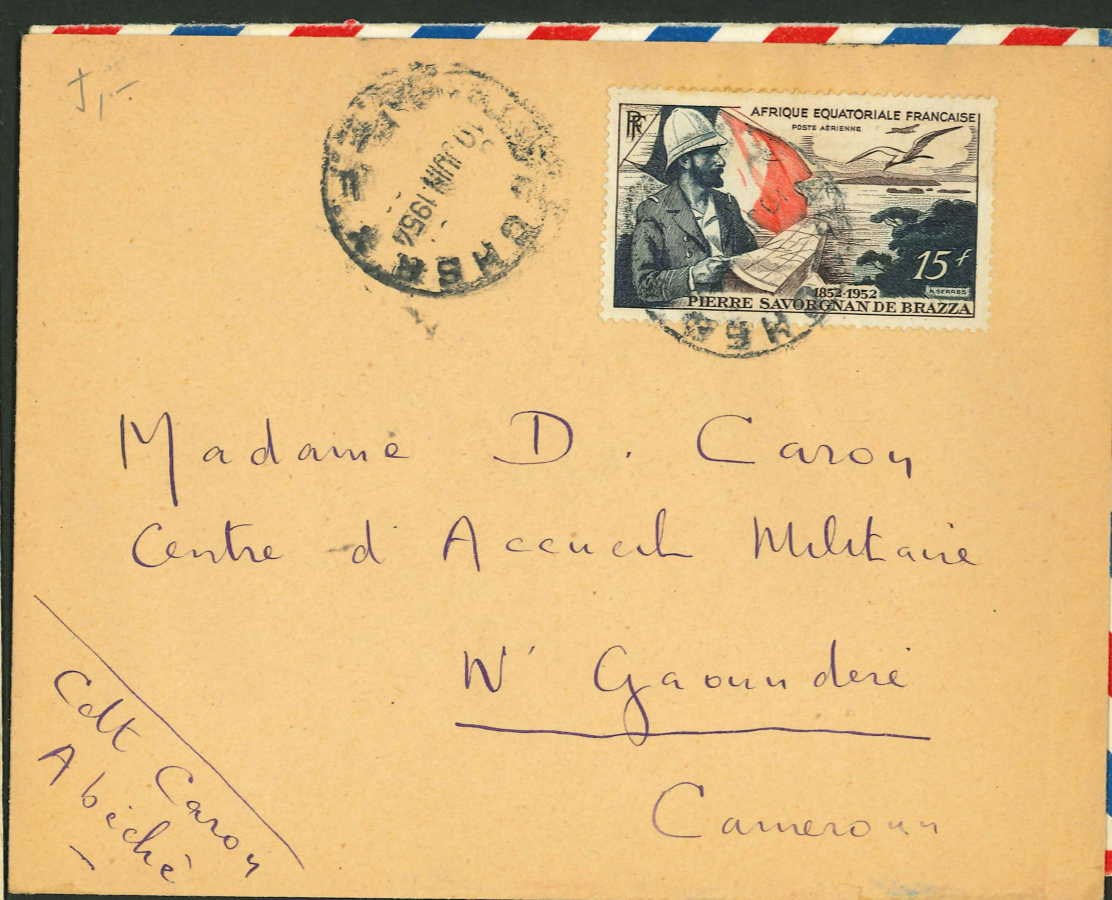 10 JUIN 1954
RF
AFRIQUE EQUATORIALE FRANCAISE
POSTE AÉRIENNE
15 f
R. SERRES
1852-1952
PIERRE SAVORGNAN DE BRAZZA
Madame D. Caron
Centre d'Accueil Militaire
N'Gaoundéré
Cameroun
Cdt Caron
Abéché